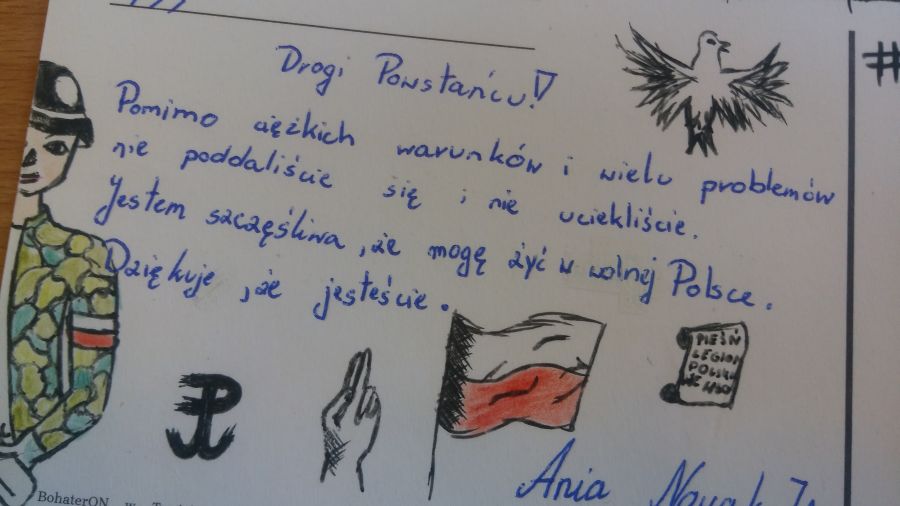 Drogi Powstańcu!
Pomimo ciężkich warunków i wielu problemów
nie poddaliście się i nie uciekliście.
Jestem szczęśliwa, że mogę żyć w wolnej Polsce.
Dziękuje, że jesteście.
PIEŚŃ
LEGION
POLSK
Ania Nowak
BohaterON w
#